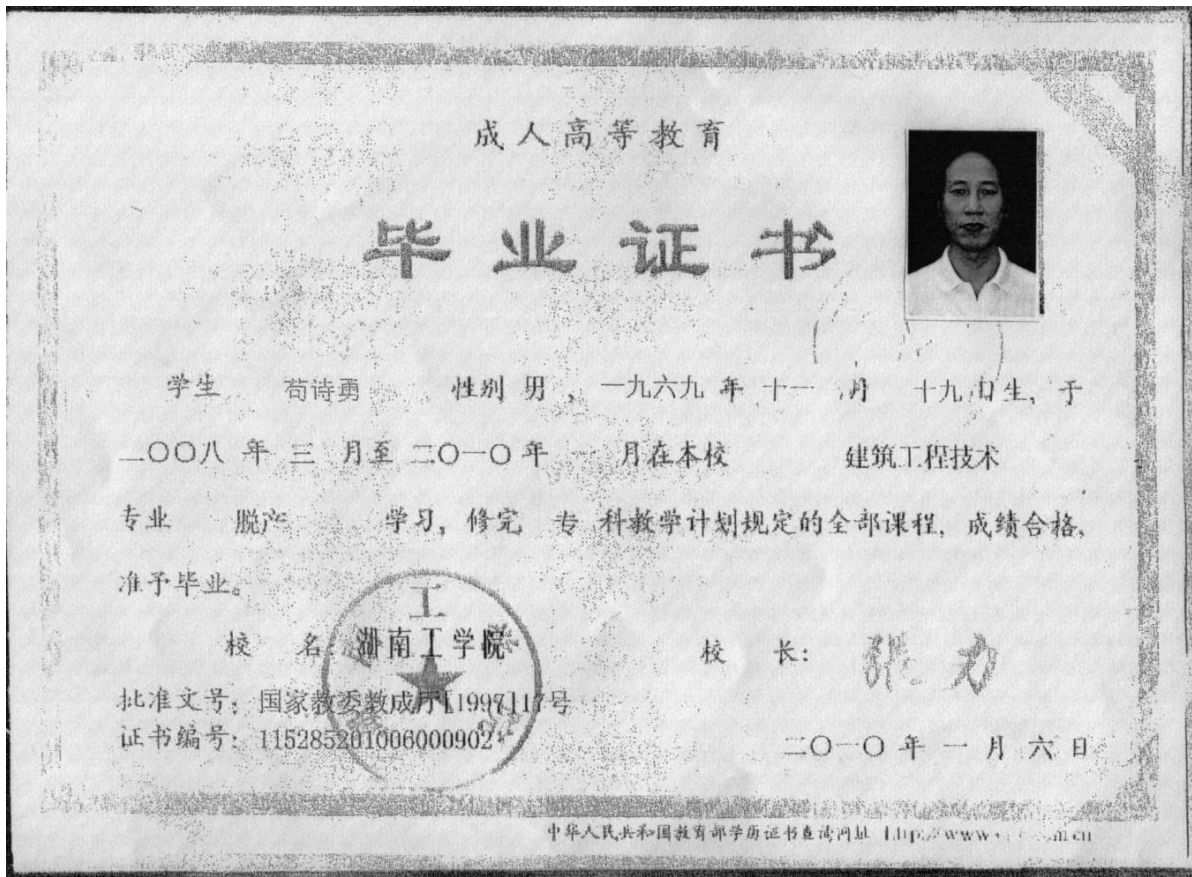 成人高等教育
毕业证书
学生 苟诗勇 性别 男，一九六九 年 十一 月 十九日生，于
二〇〇八 年 三 月至 二〇一〇年 一 月在本校 建筑工程技术
专业 脱产 学习，修完 专 科教学计划规定的全部课程，成绩合格，
准予毕业。
校 名：湖南工学院
校 长：张力
批准文号：国家教委教成厅[1997]117号
证书编号：115285201006000902
二〇一〇 年 一 月 六 日
中华人民共和国教育部学历证书查询网址